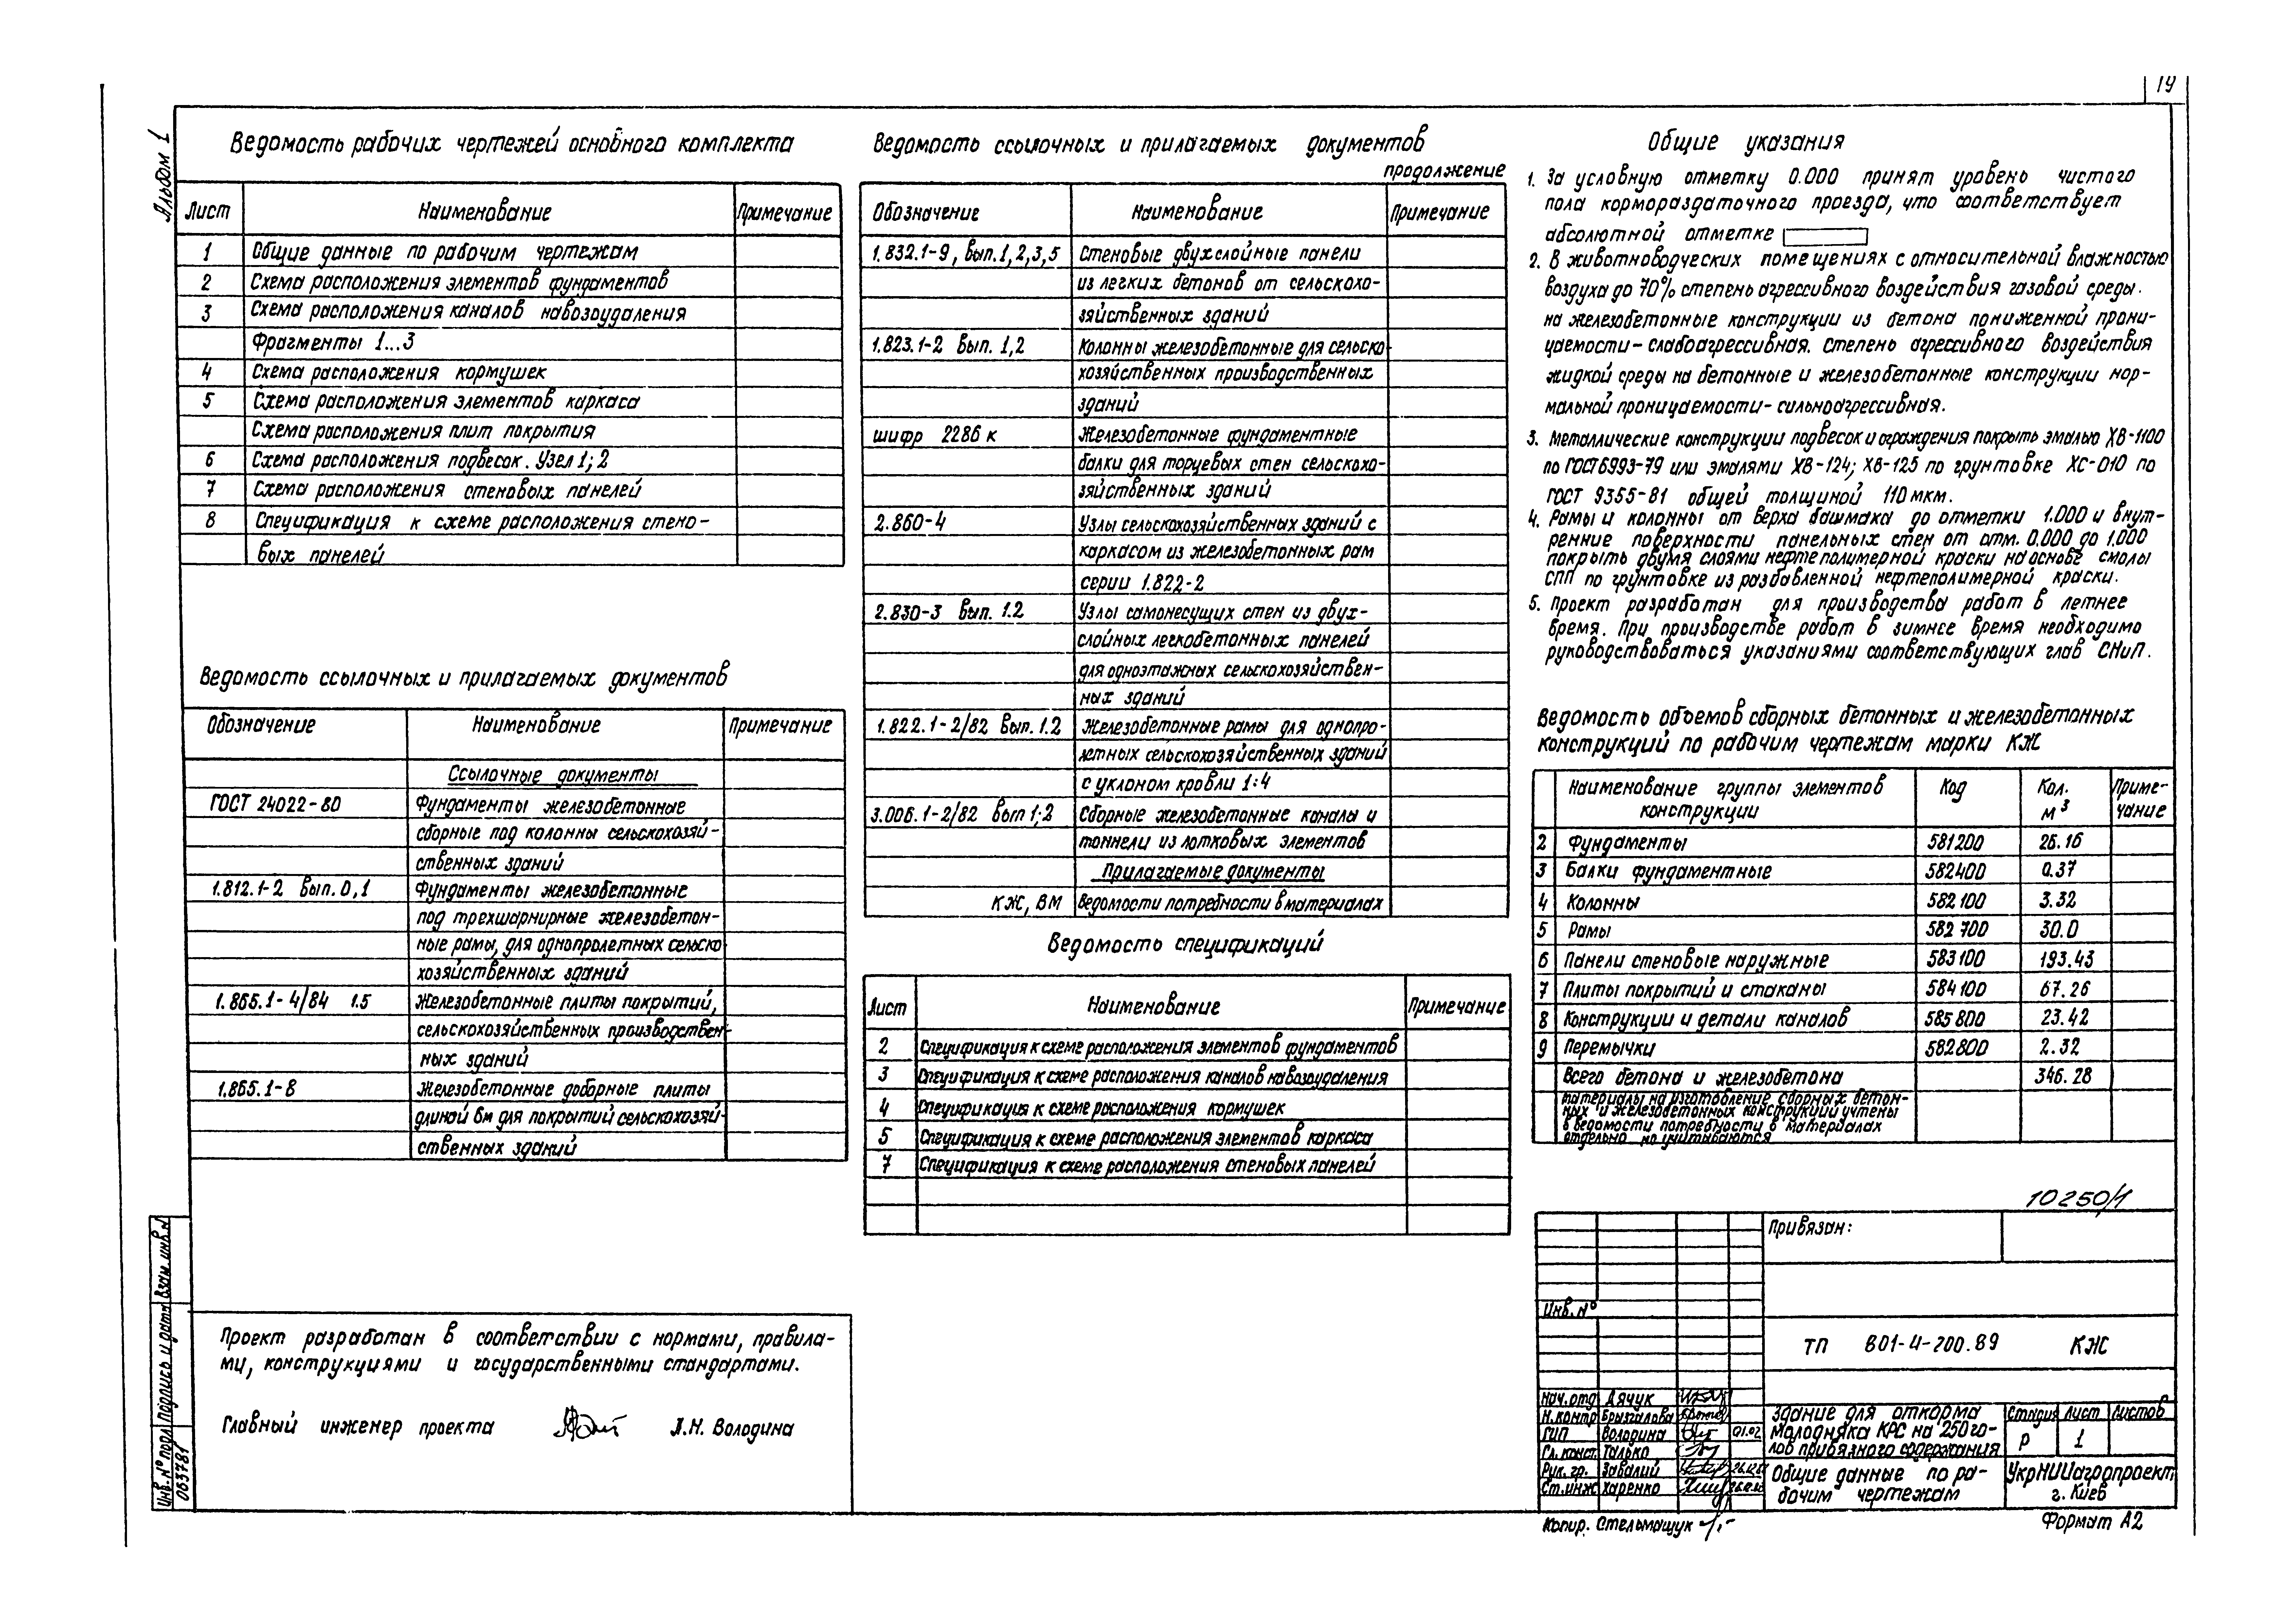 19
Альбом 1
Ведомость рабочих чертежей основного комплекта
Лист Наименование Примечание
1 Общие данные по рабочим чертежам
2 Схема расположения элементов фундаментов
3 Схема расположения каналов навозоудаления
Фрагменты 1...3
4 Схема расположения кормушек
5 Схема расположения элементов каркаса
Схема расположения плит покрытия
6 Схема расположения подвесок. Узел 1; 2
7 Схема расположения стеновых панелей
8 Спецификация к схеме расположения стено-
вых панелей
Ведомость ссылочных и прилагаемых документов
Обозначение Наименование Примечание
Ссылочные документы
ГОСТ 24022-80 Фундаменты железобетонные
сборные под колонны сельскохозяй-
ственных зданий
1.812.1-2 вып. 0,1 Фундаменты железобетонные
под трехшарнирные железобетон-
ные рамы, для однопролетных сельско
хозяйственных зданий
1.865.1-4/84 1.5 Железобетонные плиты покрытий,
сельскохозяйственных производствен-
ных зданий
1.865.1-8 Железобетонные доборные плиты
длиной 6м для покрытий сельскохозяй-
ственных зданий
Проект разработан в соответствии с нормами, правила-
ми, конструкциями и государственными стандартами.
Главный инженер проекта Л.Н. Володина
Ведомость ссылочных и прилагаемых документов
продолжение
Обозначение Наименование Примечание
1.832.1-9, вып. 1,2,3,5 Стеновые двухслойные панели
из легких бетонов от сельскохо-
зяйственных зданий
1.823.1-2 вып. 1,2 Колонны железобетонные для сельско-
хозяйственных производственных
зданий
шифр 2286 к Железобетонные фундаментные
балки для торцевых стен сельскохо-
зяйственных зданий
2.860-4 Узлы сельскохозяйственных зданий с
каркасом из железобетонных рам
серии 1.822-2
2.830-3 вып. 1.2 Узлы самонесущих стен из двух-
слойных легкобетонных панелей
для одноэтажных сельскохозяйствен-
ных зданий
1.822.1-2/82 вып. 1.2 Железобетонные рамы для однопро-
летных сельскохозяйственных зданий
с уклоном кровли 1:4
3.006.1-2/82 вып 1;2 Сборные железобетонные каналы и
тоннели из лотковых элементов
Прилагаемые документы
КЖ, ВМ Ведомости потребности в материалах
Ведомость спецификаций
Лист Наименование Примечание
2 Спецификация к схеме расположения элементов фундаментов
3 Спецификация к схеме расположения каналов навозоудаления
4 Спецификация к схеме расположения кормушек
5 Спецификация к схеме расположения элементов каркаса
7 Спецификация к схеме расположения стеновых панелей
Общие указания
1. За условную отметку 0.000 принят уровень чистого
пола кормораздаточного проезда, что соответствует
абсолютной отметке
2. В животноводческих помещениях с относительной влажностью
воздуха до 70% степень агрессивного воздействия газовой среды.
на железобетонные конструкции из бетона пониженной прони-
цаемости - слабоагрессивная. степень агрессивного воздействия
жидкой среды на бетонные и железобетонные конструкции нор-
мальной проницаемости - сильноагрессивная.
3. Металлические конструкции подвесок и ограждения покрыть эмалью ХВ-1100
по ГОСТ 6993-79 или эмалями ХВ-124; ХВ-125 по грунтовке ХС-010 по
ГОСТ 9355-81 общей толщиной 110 мкм.
4. Рамы и колонны от верха башмака до отметки 1.000 и внут-
ренние поверхности панельных стен от отм. 0.000 до 1.000
покрыть двумя слоями нефтеполимерной краски на основе смолы
СПП по грунтовке из разбавленной нефтеполимерной краски.
5. Проект разработан для производства работ в летнее
время. При производстве работ в зимнее время необходимо
руководствоваться указаниями соответствующих глав СНиП.
Ведомость объемов сборных бетонных и железобетонных
конструкций по рабочим чертежам марки КЖ
Наименование группы элементов конструкции Код Кол. м³ Приме-чание
2 Фундаменты 581200 26.16
3 Балки фундаментные 582400 0.37
4 Колонны 582100 3.32
5 Рамы 582700 30.0
6 Панели стеновые наружные 583100 193.43
7 Плиты покрытий и стаканы 584100 67.26
8 Конструкции и детали каналов 585800 23.42
9 Перемычки 582800 2.32
Всего бетона и железобетона 346.28
Материалы на изготовление сборных бетон-
ных и железобетонных конструкций учтены
в ведомости потребности в материалах
отдельно не учитываются
10250/1
Привязан:
Инв. №
ТП 801-4-200.89 КЖ
Нач. отд Дячук
Н. контр Брызгалова
ГИП Володина 01.02
Гл. конст. Талько
Рук. гр. Завалий
Ст. инж Харенко
Здание для откорма
молодняка КРС на 250 го-
лов привязного содержания
Стадия Лист Листов
Р 1
Общие данные по ра-
бочим чертежам
УкрНИИагропроект
г. Киев
Копир. Стельмащук
Формат А2
Инв. № подл Подпись и дата Взам инв. №
053781